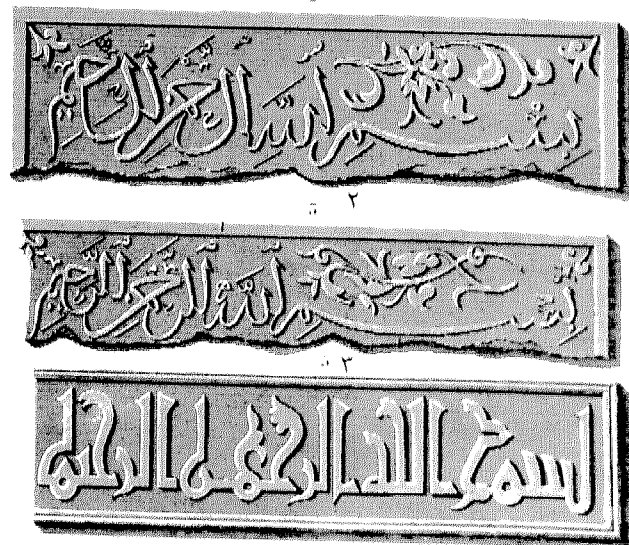 بسم الله الرحمن الرحيم
٢
بسم الله الرحمن الرحيم
٣
بسم الله الرحمن الرحيم